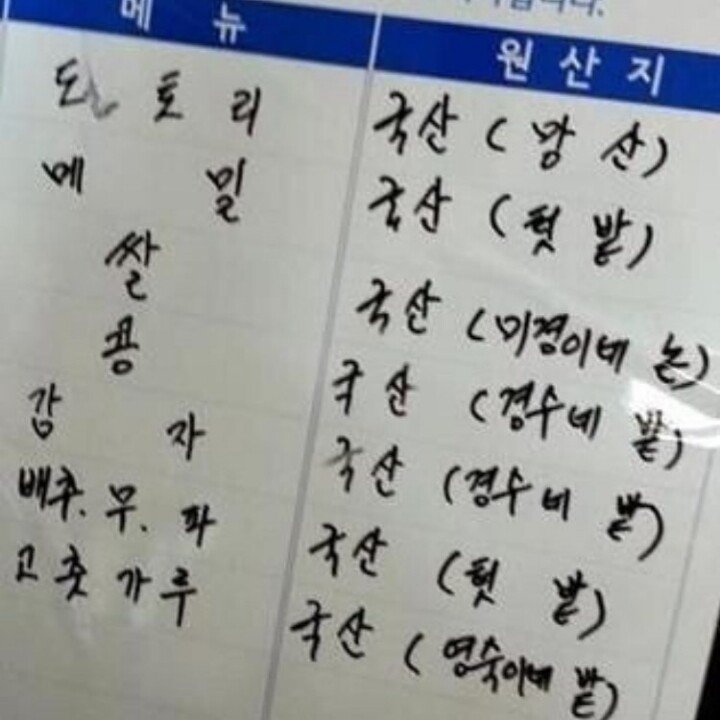 메뉴 원산지
도토리 국산 (앞산)
메밀 국산 (텃밭)
쌀 국산 (미경이네 논)
콩 국산 (경수네 밭)
감자 국산 (경수네 밭)
배추.무.파 국산 (텃밭)
고춧가루 국산 (영숙이네 밭)